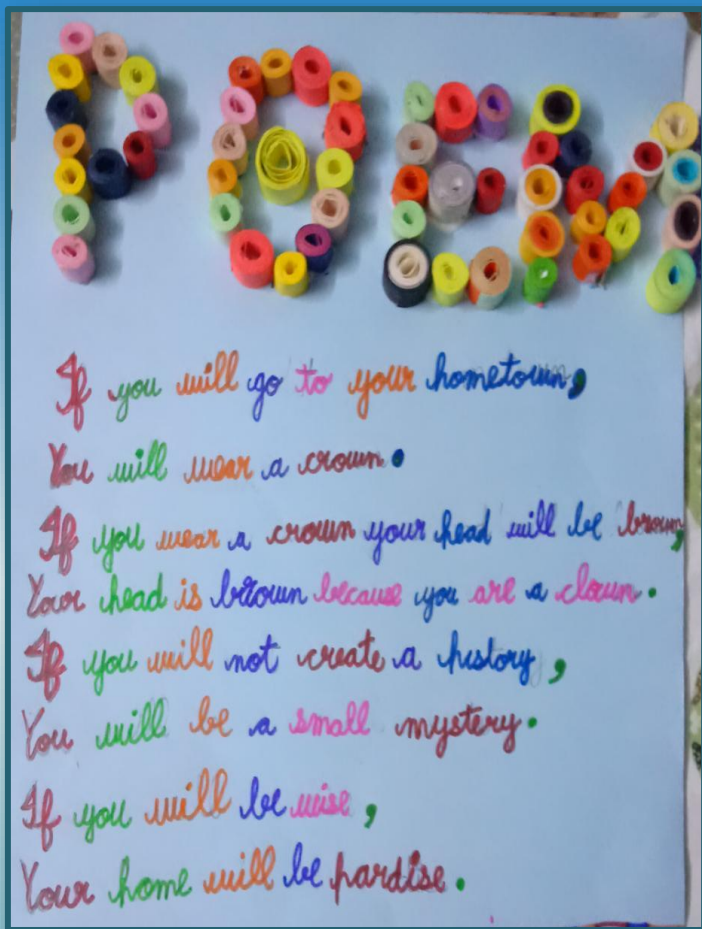 POEM
If you will go to your hometown,
You will wear a crown.
If you wear a crown your head will be brown,
Your head is brown because you are a clown.
If you will not create a history,
You will be a small mystery.
If you will be wise,
Your home will be pardise.